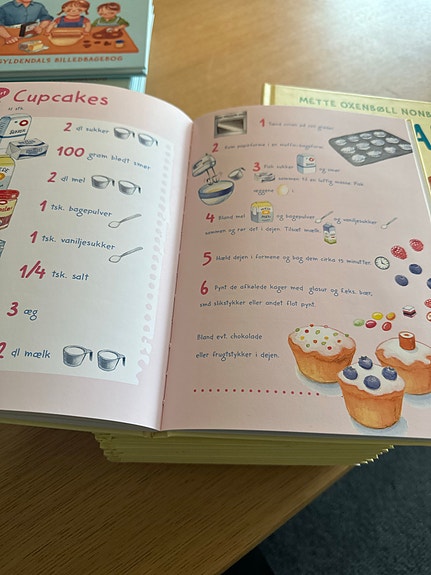 GYLDENDALS BILLEDBAGEBOG
METTE OXENBØLL NONB
Cupcakes
2 dl sukker
100 gram blødt smør
2 dl mel
1 tsk. bagepulver
1 tsk. vaniljesukker
1/4 tsk. salt
3 æg
2 dl mælk
1 Tænd ovnen på 200 grader.
2
3 Pisk sukker og smør
sammen til en luftig masse. Pisk
æggene
4 Bland mel og bagepulver og vaniljesukker
sammen og rør det i dejen. Tilsæt mælk.
5 Hæld dejen i formene og bag dem cirka 15 minutter.
6 Pynt de afkølede kager med glasur og f.eks. bær,
små slikstykker eller andet flot pynt.
Bland evt. chokolade
eller frugtstykker i dejen.